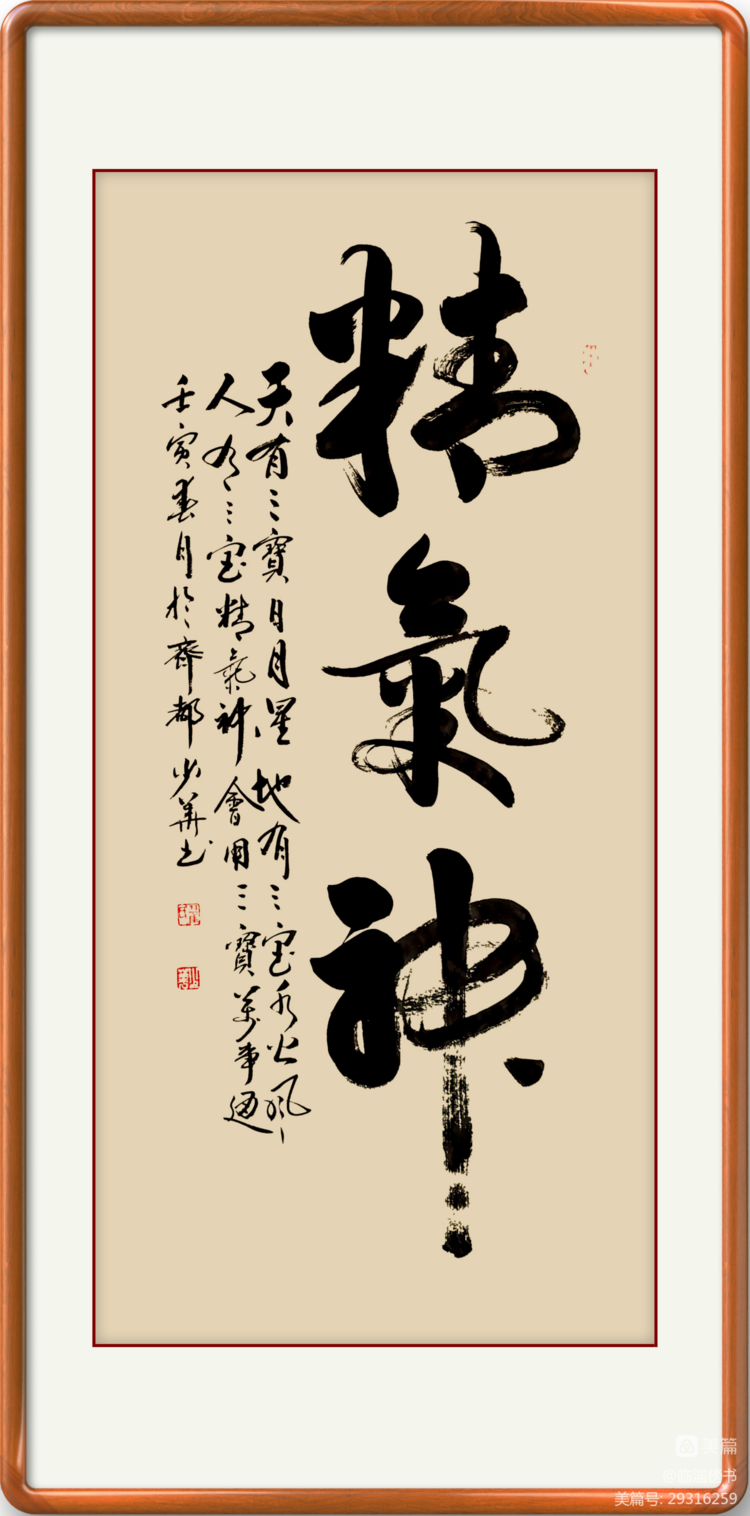 精氣神
天有三寶日月星地有三宝水火風
人有三宝精氣神會用三寶萬事通
壬寅春月於齊都少華书
美篇
美篇号: 29316259